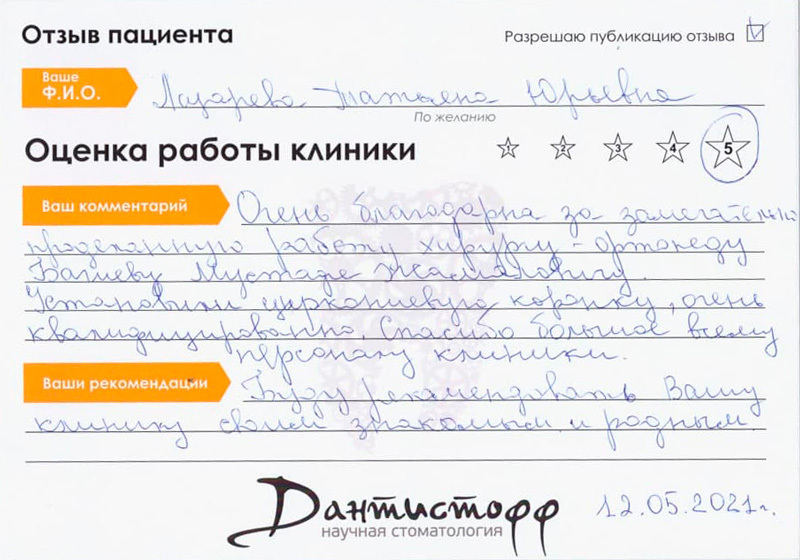 Отзыв пациента
Разрешаю публикацию отзыва
Ваше
Ф.И.О.
Лазарева Татьяна Юрьевна
По желанию
Оценка работы клиники
1 2 3 4 5
Ваш комментарий
Очень благодарна за замечательно
проделанную работу хирургу-ортопеду
Багиеву Мустафе Жамаловичу.
Установили циркониевую коронку, очень
квалифицированно. Спасибо большое всему
персоналу клиники.
Ваши рекомендации
Буду рекомендовать Вашу
клинику своим знакомым и родным.
Дантистофф
научная стоматология
12.05.2021г.